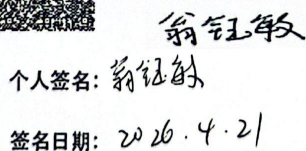 翁钰敏
个人签名：翁钰敏
签名日期：2026.4.21